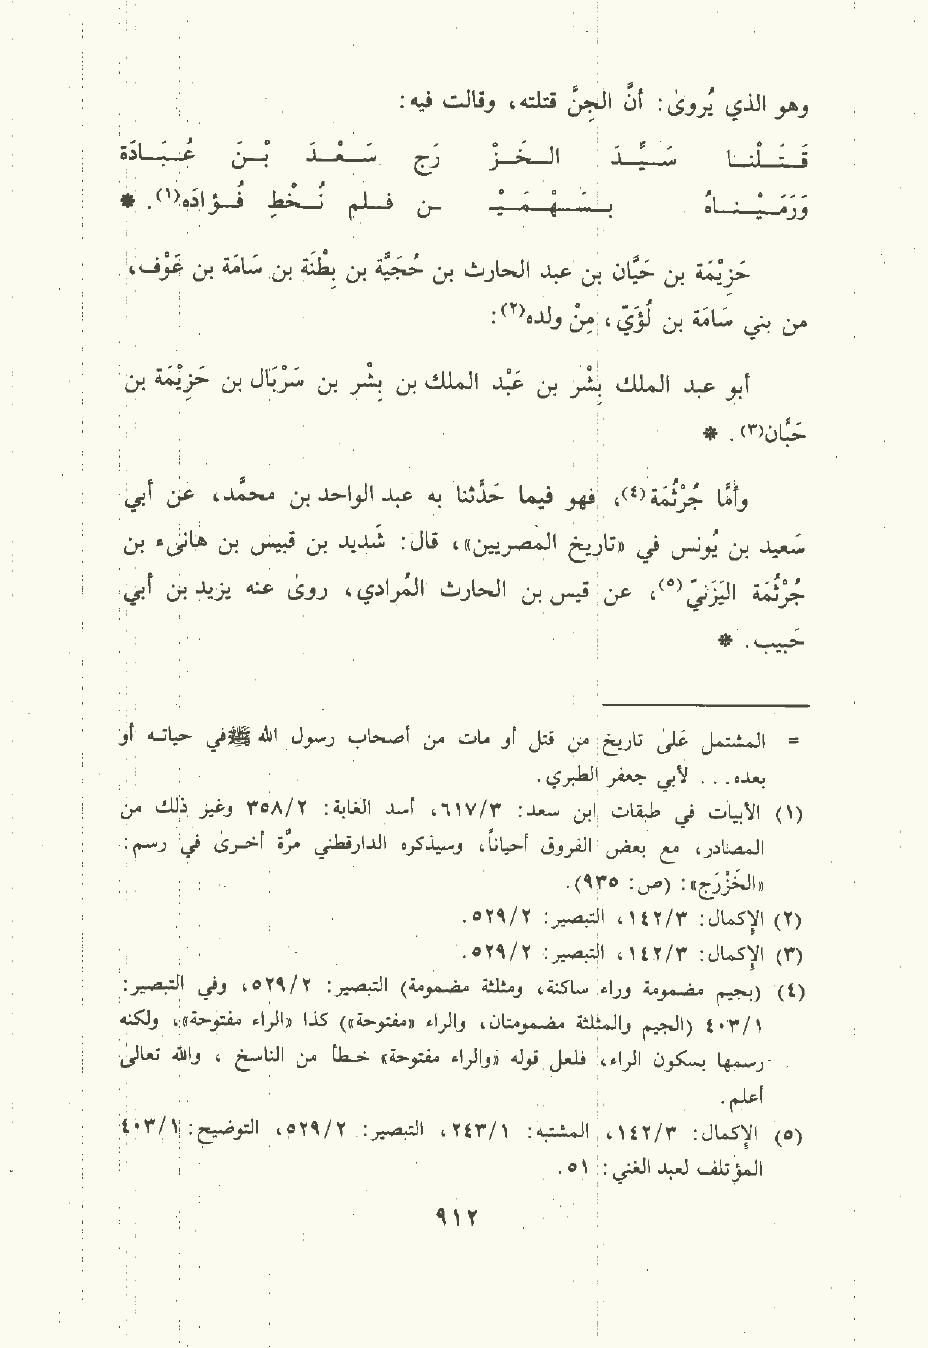 وهو الذي يُروىٰ: أنَّ الجِنَّ قتلته، وقالت فيه:
قَـتَـلْـنـا سَـيِّـدَ الخَـزْ رَجِ سَـعْـدَ بْـنَ عُـبَـادَة
وَرَمَـيْـنـاهُ بـسَـهْـمَـيْـ ـنِ فـلـم نُـخْـطِ فُـؤادَه(١). *
خَزِيْمَة بن حَيَّان بن عبد الحارث بن حُجَيَّة بن بِطْنَة بن سَامَة بن غَوْف،
من بني سَامَة بن لُؤَيّ، مِنْ ولده(٢):
أبو عبد الملك بِشْر بن عَبْد الملك بن بِشْر بن سَرْبَال بن خَزِيْمَة بن
حَيَّان(٣). *
وأمَّا جُرْثُمَة(٤)، فهو فيما حَدَّثنا به عبد الواحد بن محمَّد، عن أبي
سَعيد بن يُونس في «تاريخ المصريين»، قال: شَديد بن قيس بن هانىء بن
جُرْثُمَة اليَزَنيّ(٥)، عن قيس بن الحارث المُرادي، روىٰ عنه يزيد بن أبي
حَبيب. *
= المشتمل علىٰ تاريخ من قتل أو مات من أصحاب رسول الله ﷺ في حياته أو
بعده... لأبي جعفر الطبري.
(١) الأبيات في طبقات ابن سعد: ٦١٧/٣، أسد الغابة: ٣٥٨/٢ وغير ذلك من
المصادر، مع بعض الفروق أحياناً، وسيذكره الدارقطني مرَّة أخرىٰ في رسم:
«الخَزْرَج»: (ص: ٩٣٥).
(٢) الإكمال: ١٤٢/٣، التبصير: ٥٢٩/٢.
(٣) الإكمال: ١٤٢/٣، التبصير: ٥٢٩/٢.
(٤) (بجيم مضمومة وراء ساكنة، ومثلثة مضمومة) التبصير: ٥٢٩/٢، وفي التبصير:
٤٠٣/١ (الجيم والمثلثة مضمومتان، والراء «مفتوحة») كذا «الراء مفتوحة»، ولكنه
رسمها بسكون الراء، فلعل قوله «والراء مفتوحة» خطأ من الناسخ، والله تعالىٰ
أعلم.
(٥) الإكمال: ١٤٢/٣، المشتبه: ٢٤٣/١، التبصير: ٥٢٩/٢، التوضيح: ٤٠٣/١
المؤتلف لعبد الغني: ٥١.
٩١٢